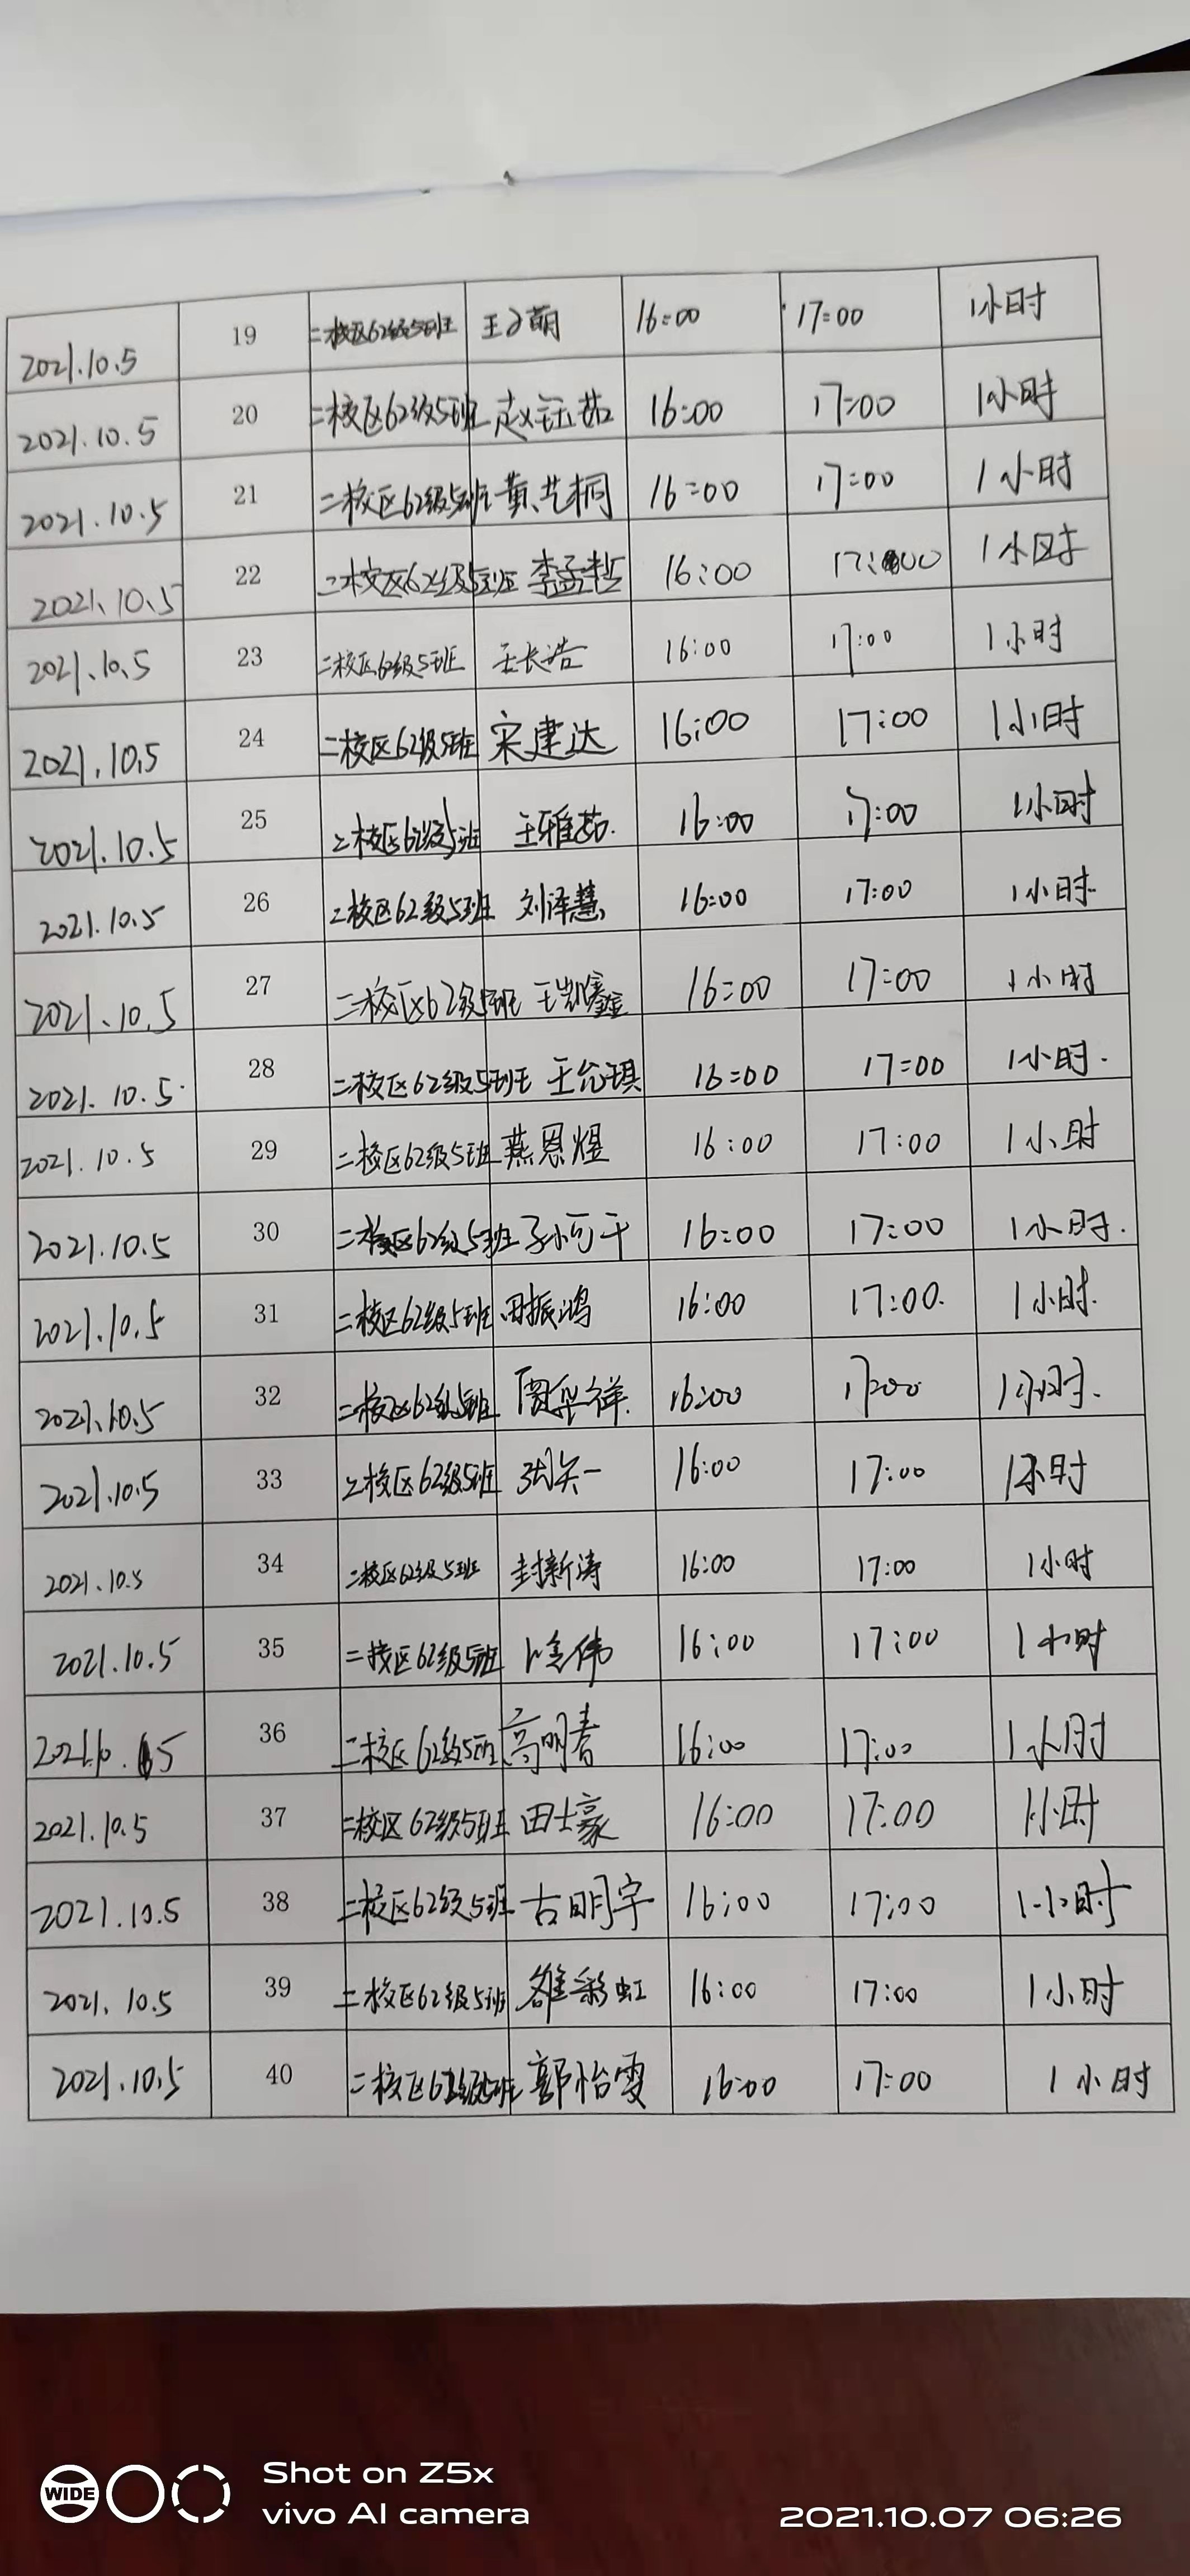 2021.10.5 19 二校区62级5班 王子萌 16:00 17:00 1小时
2021.10.5 20 二校区62级5班 赵钰茹 16:00 17:00 1小时
2021.10.5 21 二校区62级5班 黄艺桐 16:00 17:00 1小时
2021.10.5 22 二校区62级5班 李孟哲 16:00 17:00 1小时
2021.10.5 23 二校区62级5班 王长浩 16:00 17:00 1小时
2021.10.5 24 二校区62级5班 宋建达 16:00 17:00 1小时
2021.10.5 25 二校区62级5班 王雅茹 16:00 17:00 1小时
2021.10.5 26 二校区62级5班 刘泽慧 16:00 17:00 1小时
2021.10.5 27 二校区62级5班 王凯鑫 16:00 17:00 1小时
2021.10.5 28 二校区62级5班 王允琪 16:00 17:00 1小时
2021.10.5 29 二校区62级5班 燕恩煜 16:00 17:00 1小时
2021.10.5 30 二校区62级5班 孙可千 16:00 17:00 1小时
2021.10.5 31 二校区62级5班 田振鸿 16:00 17:00 1小时
2021.10.5 32 二校区62级5班 16:00 17:00 1小时
2021.10.5 33 二校区62级5班 16:00 17:00 1小时
2021.10.5 34 二校区62级5班 封新涛 16:00 17:00 1小时
2021.10.5 35 二校区62级5班 16:00 17:00 1小时
2021.10.5 36 二校区62级5班 高明春 16:00 17:00 1小时
2021.10.5 37 二校区62级5班 田士豪 16:00 17:00 1小时
2021.10.5 38 二校区62级5班 古明宇 16:00 17:00 1小时
2021.10.5 39 二校区62级5班 彩虹 16:00 17:00 1小时
2021.10.5 40 二校区62级5班 郭怡雯 16:00 17:00 1小时
WIDE
Shot on Z5x
vivo AI camera
2021.10.07 06:26